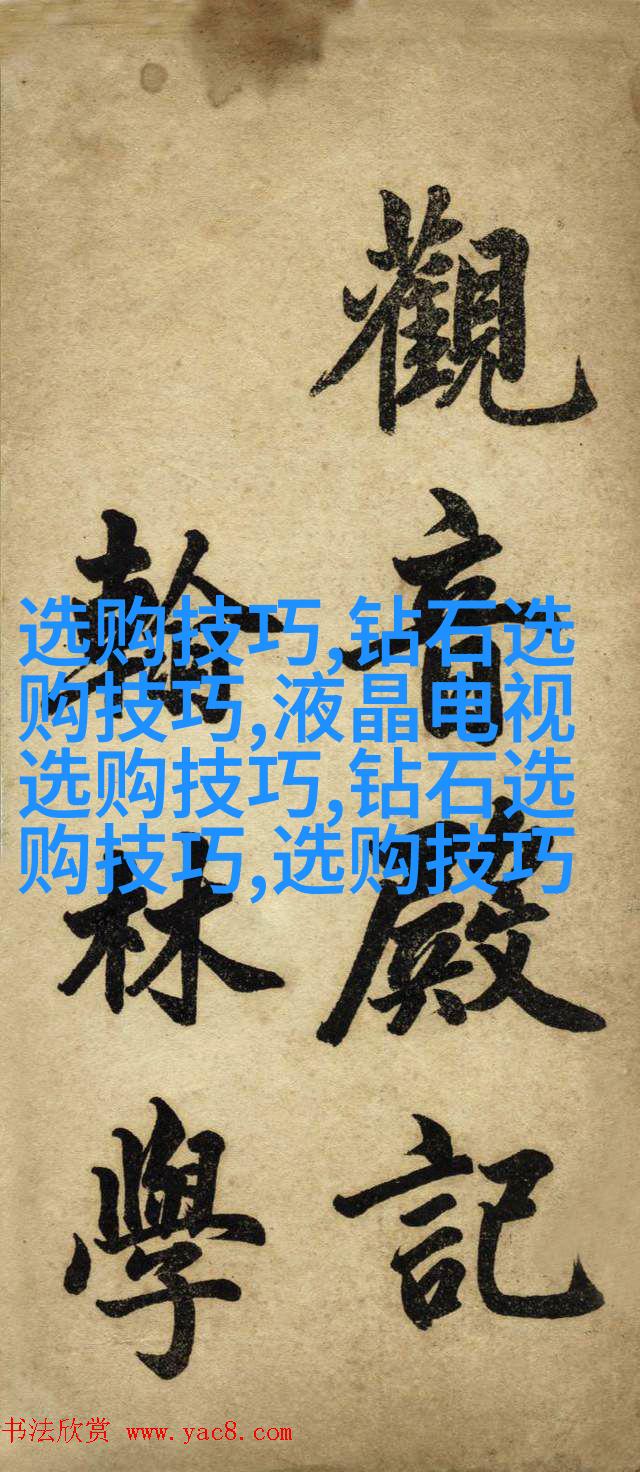 觀音殿記
翰林學
选购技巧,钻石选
购技巧,液晶电视
选购技巧,钻石选
购技巧,选购技巧
书法欣赏 www.yac8.com